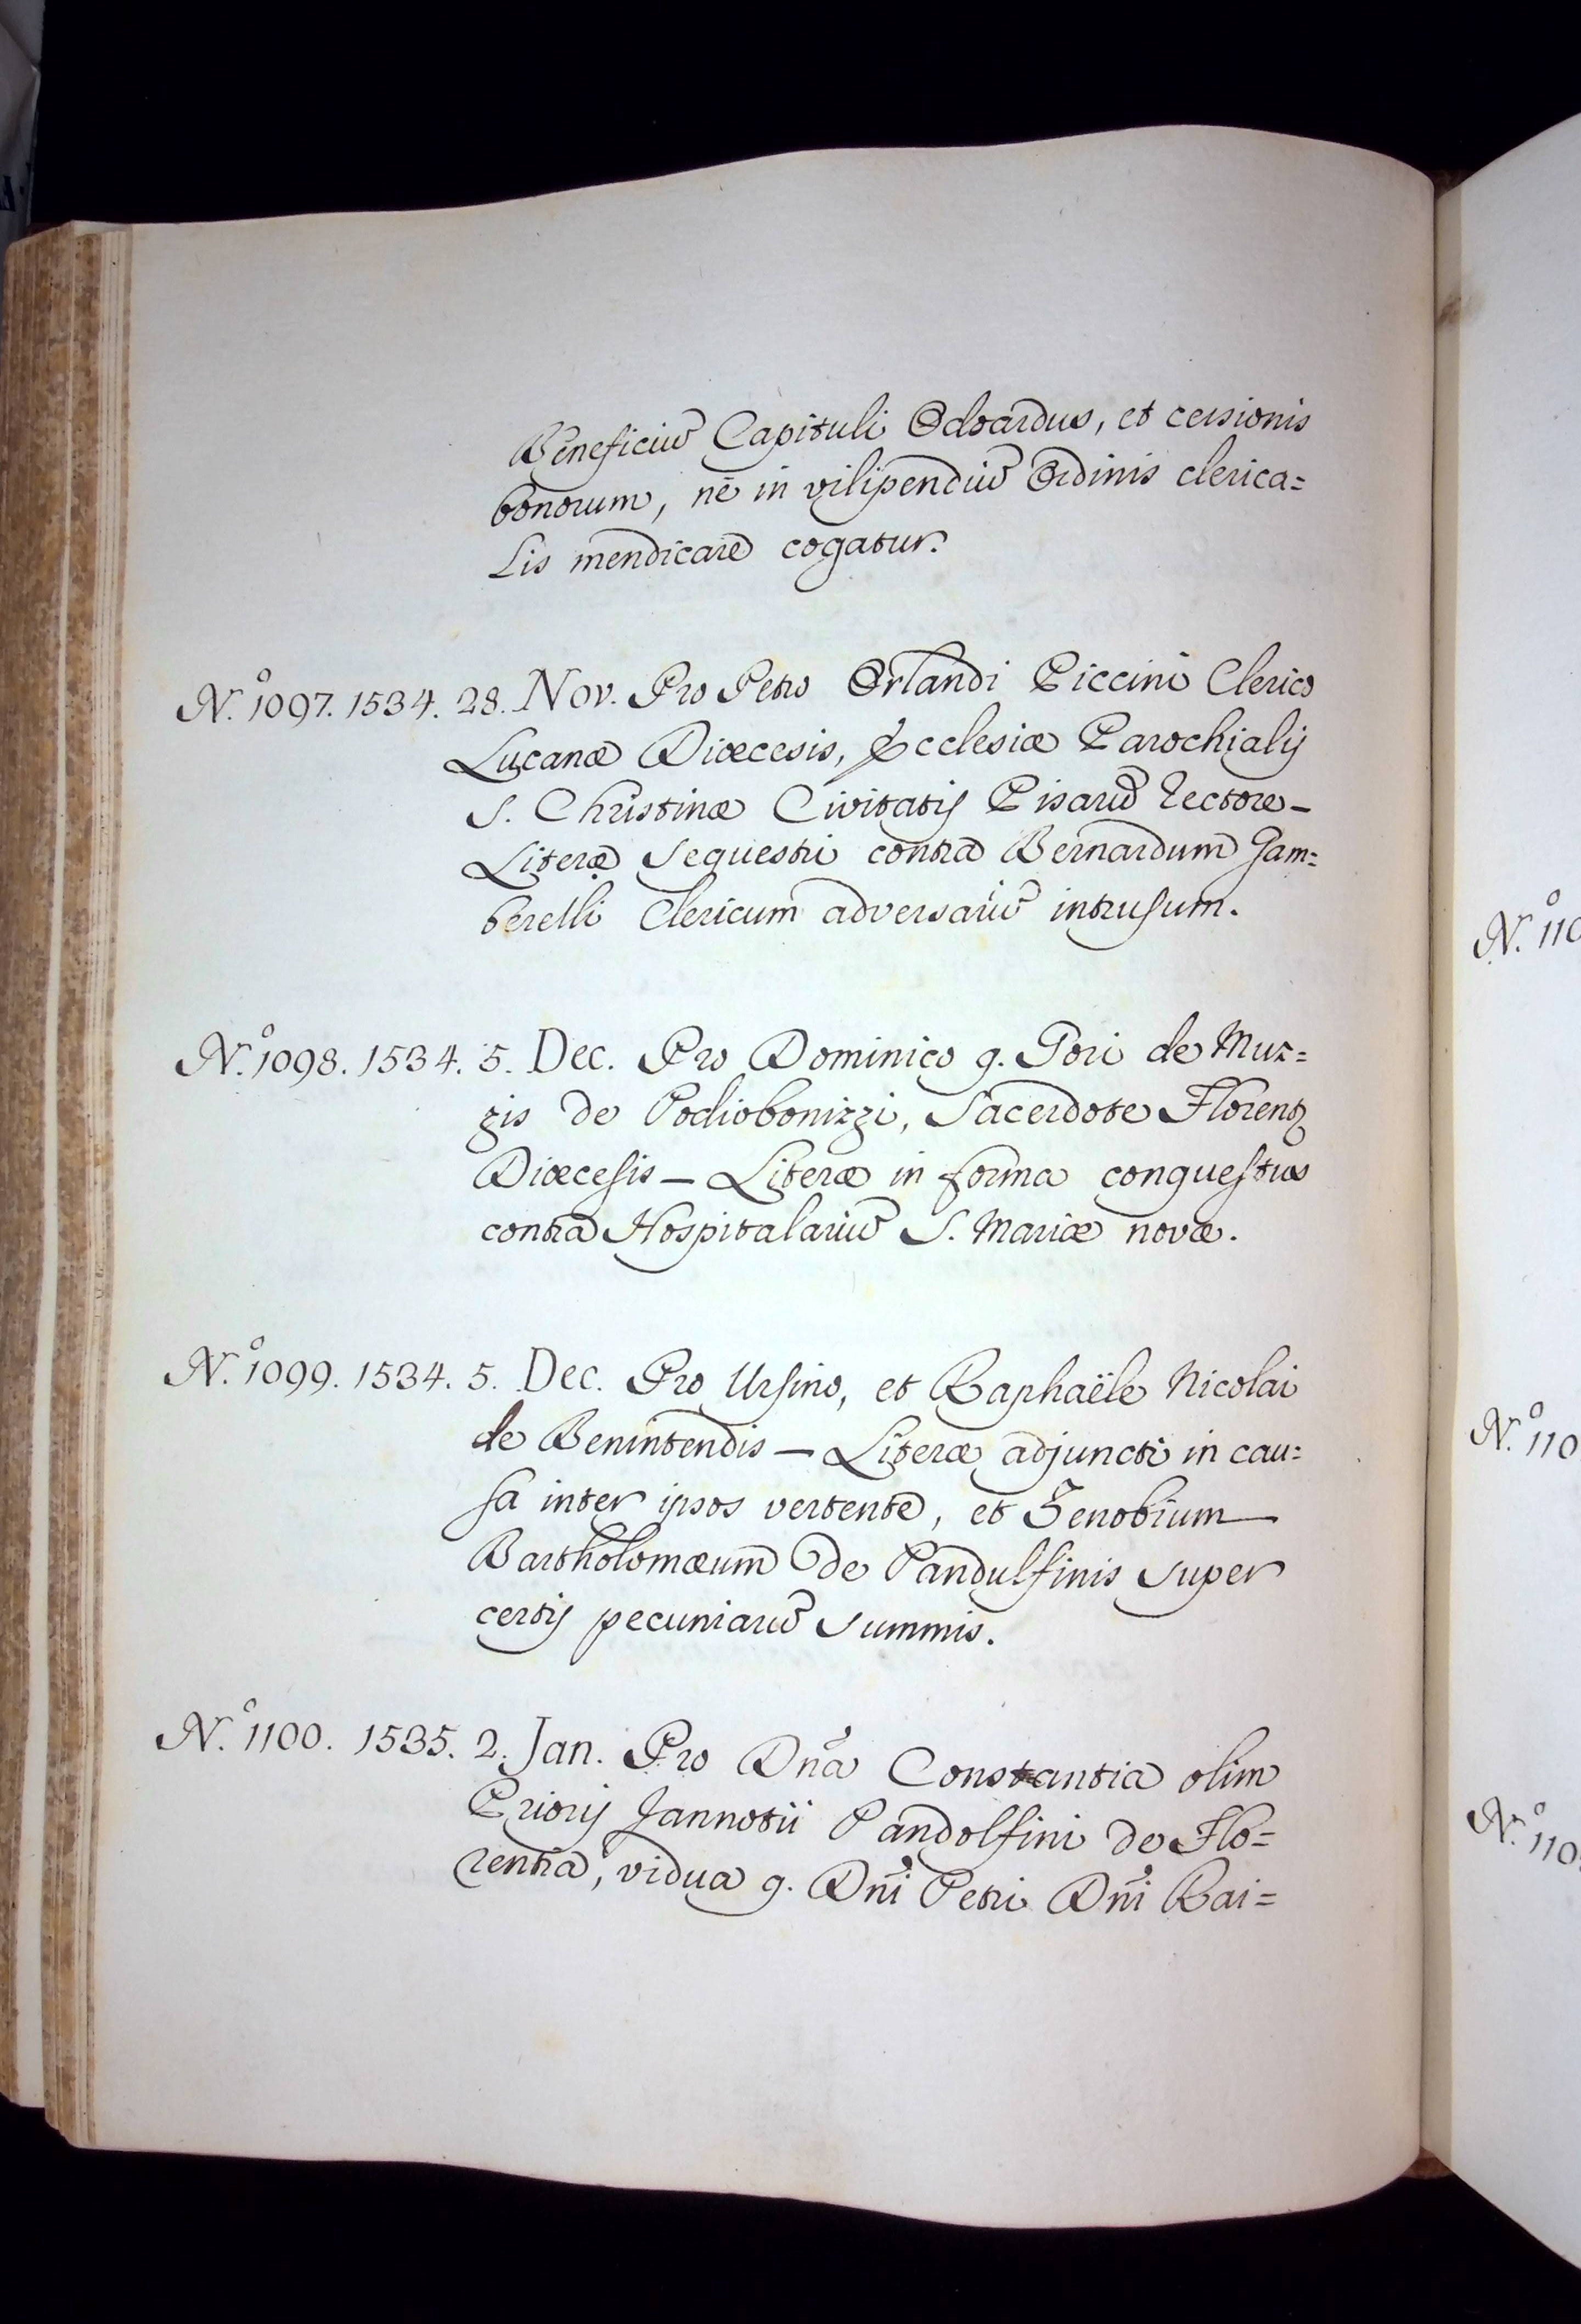 Beneficiũ Capituli Odoardus, et cessionis
bonorum, ne in vilipendiũ Ordinis clerica=
lis mendicare cogatur.
N.º 1097. 1534. 28. Nov. Pro Petro Orlandi Piccini Clerico
Lucanæ Diœcesis, Ecclesiæ Parochialis
S. Christinæ Civitatis Pisarũ Rectore –
Literæ sequestri contra Bernardum Gam=
berelli Clericum adversariũ intrusum.
N.º 1098. 1534. 5. Dec. Pro Dominico q. Gori de Muz=
zis de Podiobonizzi, Sacerdote Florent
Diœcesis – Literæ in forma conquestus
contra Hospitalariũ S. Mariæ novæ.
N.º 1099. 1534. 5. Dec. Pro Ursino, et Raphaële Nicolai
de Benintendis – Literæ adjuncti in cau=
sa inter ipsos vertente, et Zenobium
Bartholomæum de Pandulfinis super
certis pecuniarũ summis.
N.º 1100. 1535. 2. Jan. Pro Dña Constantia olim
Prioris Jannotii Pandolfini de Flo=
rentia, vidua q. Dñi Petri Dñi Rai=
N.º 110
N.º 110
N.º 110